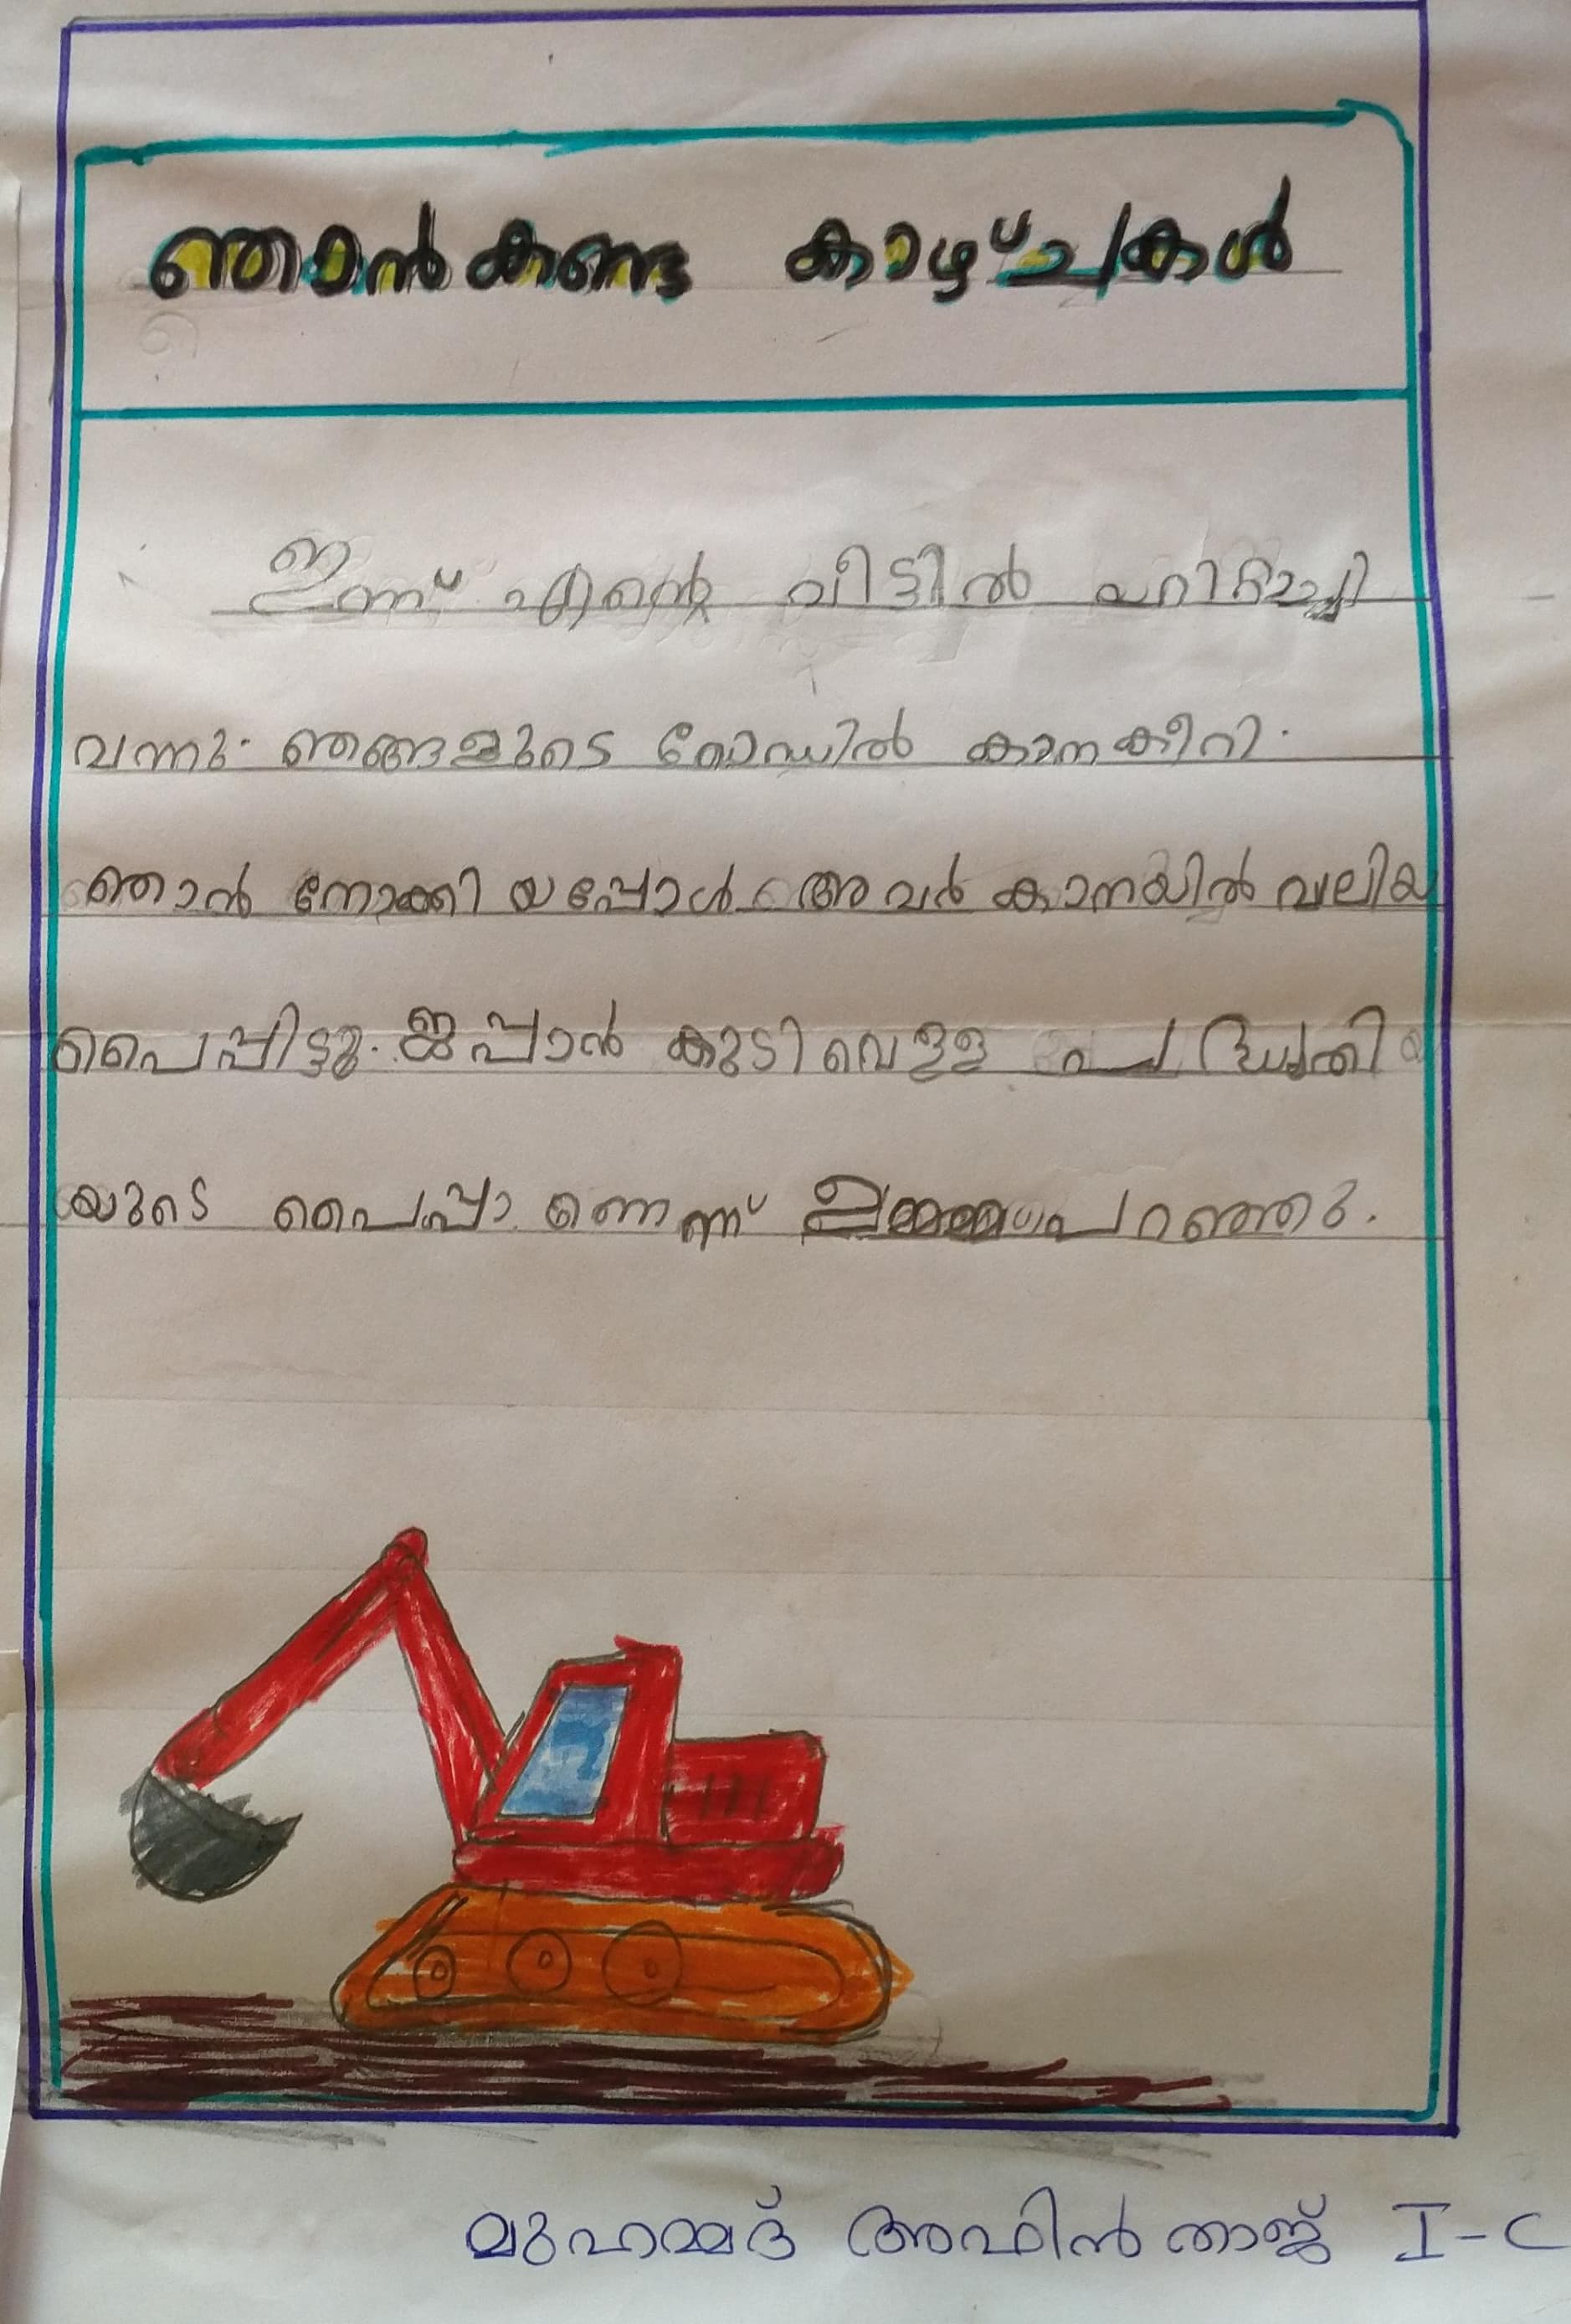 ഞാൻ കണ്ട കാഴ്ചകൾ
ഇന്ന് എന്റെ വീട്ടിൽ ഹിറ്റാച്ചി
വന്നു. ഞങ്ങളുടെ റോഡിൽ കാന കീറി.
ഞാൻ നോക്കി യപ്പോൾ അവർ കാനയിൽ വലിയ
പൈപ്പിട്ടു. ജപ്പാൻ കുടിവെള്ള പദ്ധതി
യുടെ പൈപ്പാ ണെന്ന് ഉമ്മ പറഞ്ഞു.
മുഹമ്മദ് അഫിൻ താജ് I-C